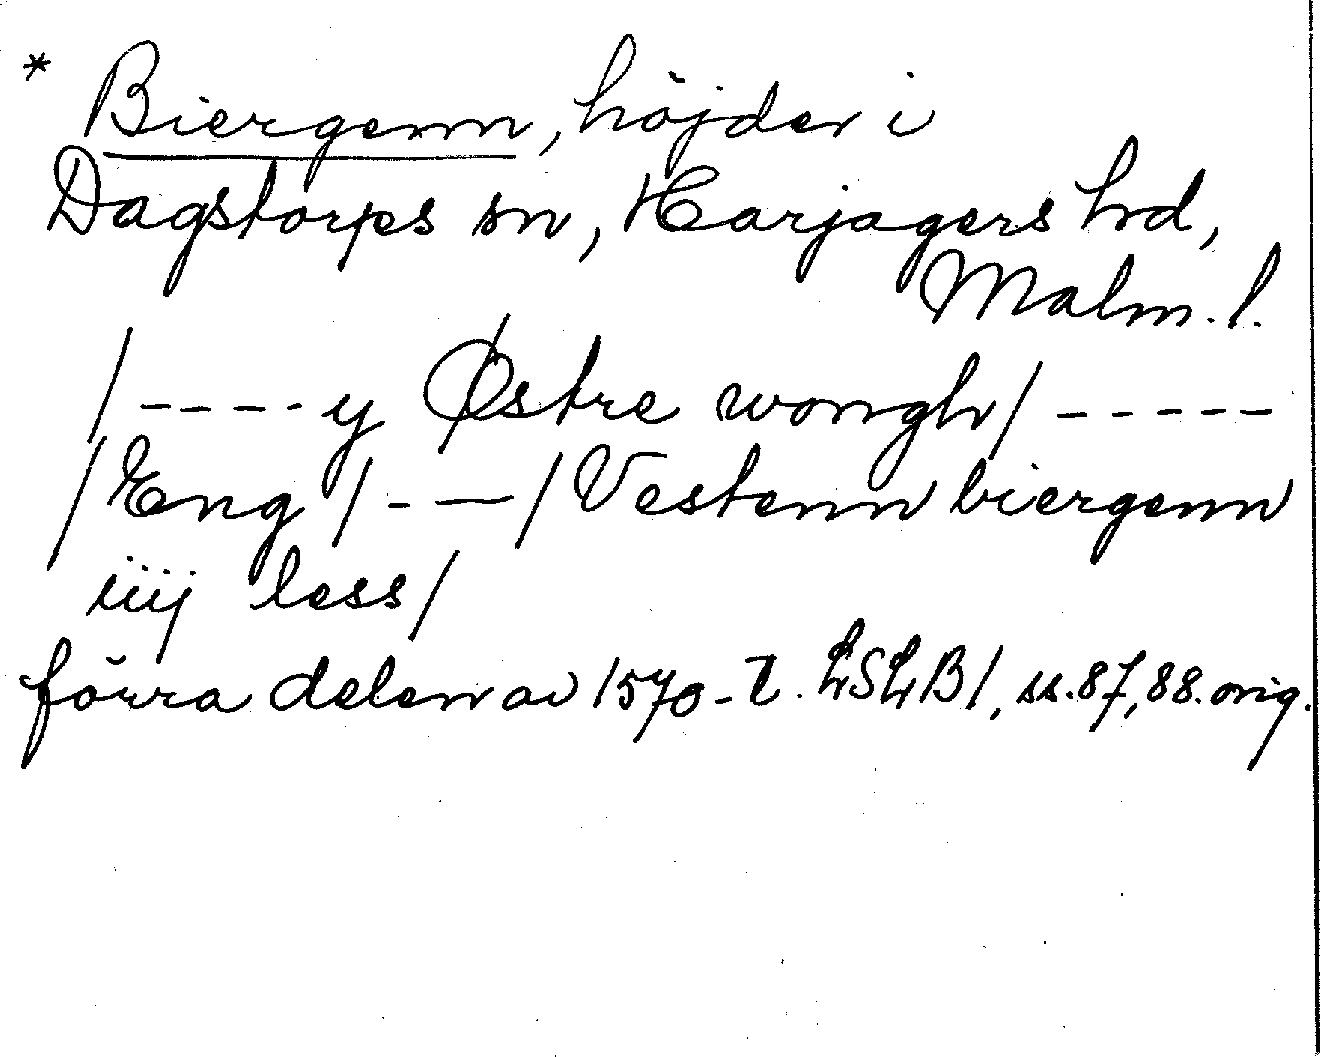 * Biergenn, höjder i
Dagstorps sn, Harjagers hrd,
Malm. l.
/ - - - - y Østre wongh / - - - - -
/ Eng / - - - / Vestenn biergenn
iiij less /
förra delen av 1570- t. LSLB1, ss. 87, 88. orig.